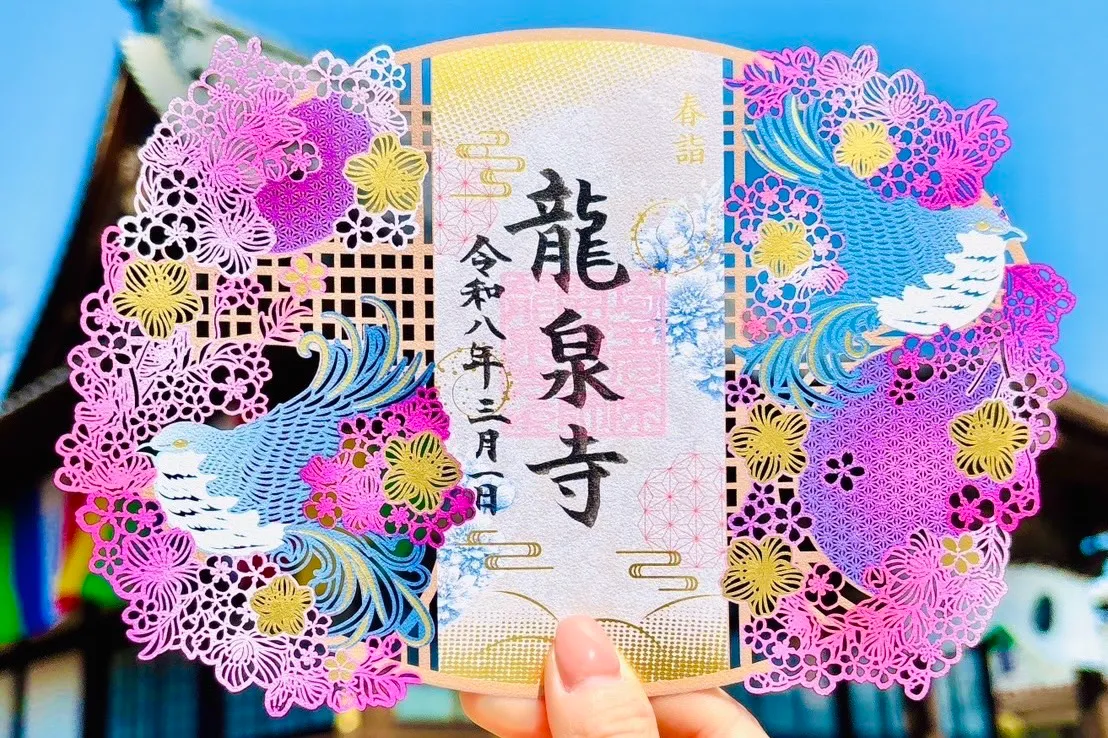 春詣
龍泉寺
令和八年三月一日